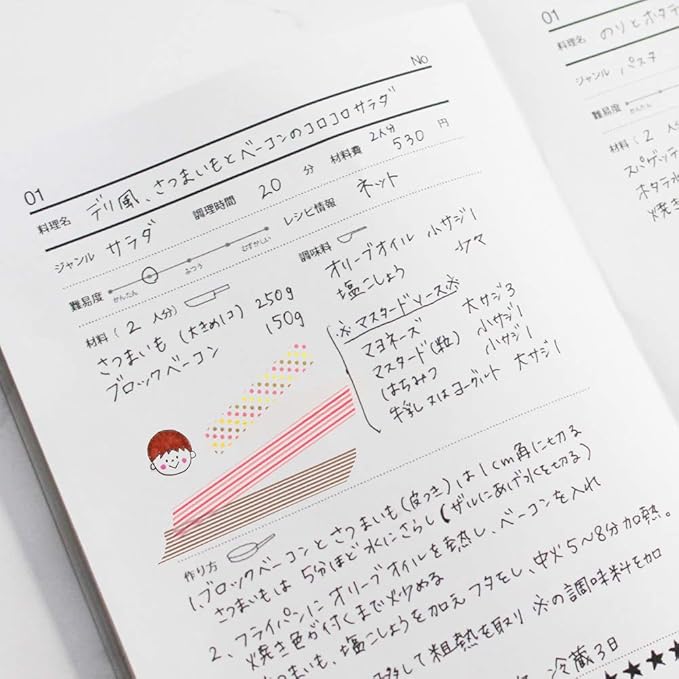 No
01
料理名 デリ風、さつまいもとベーコンのコロコロサラダ
ジャンル サラダ 調理時間 20 分 材料費 2人分 530 円
難易度 かんたん ふつう むずかしい レシピ情報 ネット
材料（2 人分）
さつまいも(大きめ1コ) 250g
ブロックベーコン 150g
調味料
オリーブオイル 小サジ1
塩こしょう 少々
※マスタードソース※
マヨネーズ 大サジ3
マスタード(粒) 小サジ1
はちみつ 小サジ1
牛乳又はヨーグルト 大サジ1
作り方
1.ブロックベーコンとさつまいも(皮つき)は1cm角に切る
さつまいもは5分ほど水にさらし(ザルにあげ水を切る)
2、フライパンにオリーブオイルを熱し、ベーコンを入れ
焼き色が付くまで炒める
さつまいも、塩こしょうを加えフタをし、中火5〜8分加熱。
移して粗熱を取り ※の調味料を加
冷蔵3日
★★★★
01
料理名 のりとホタテ
ジャンル パスタ
難易度 かんたん
材料（2 人分
スパゲッテ
ホタテ水
焼き